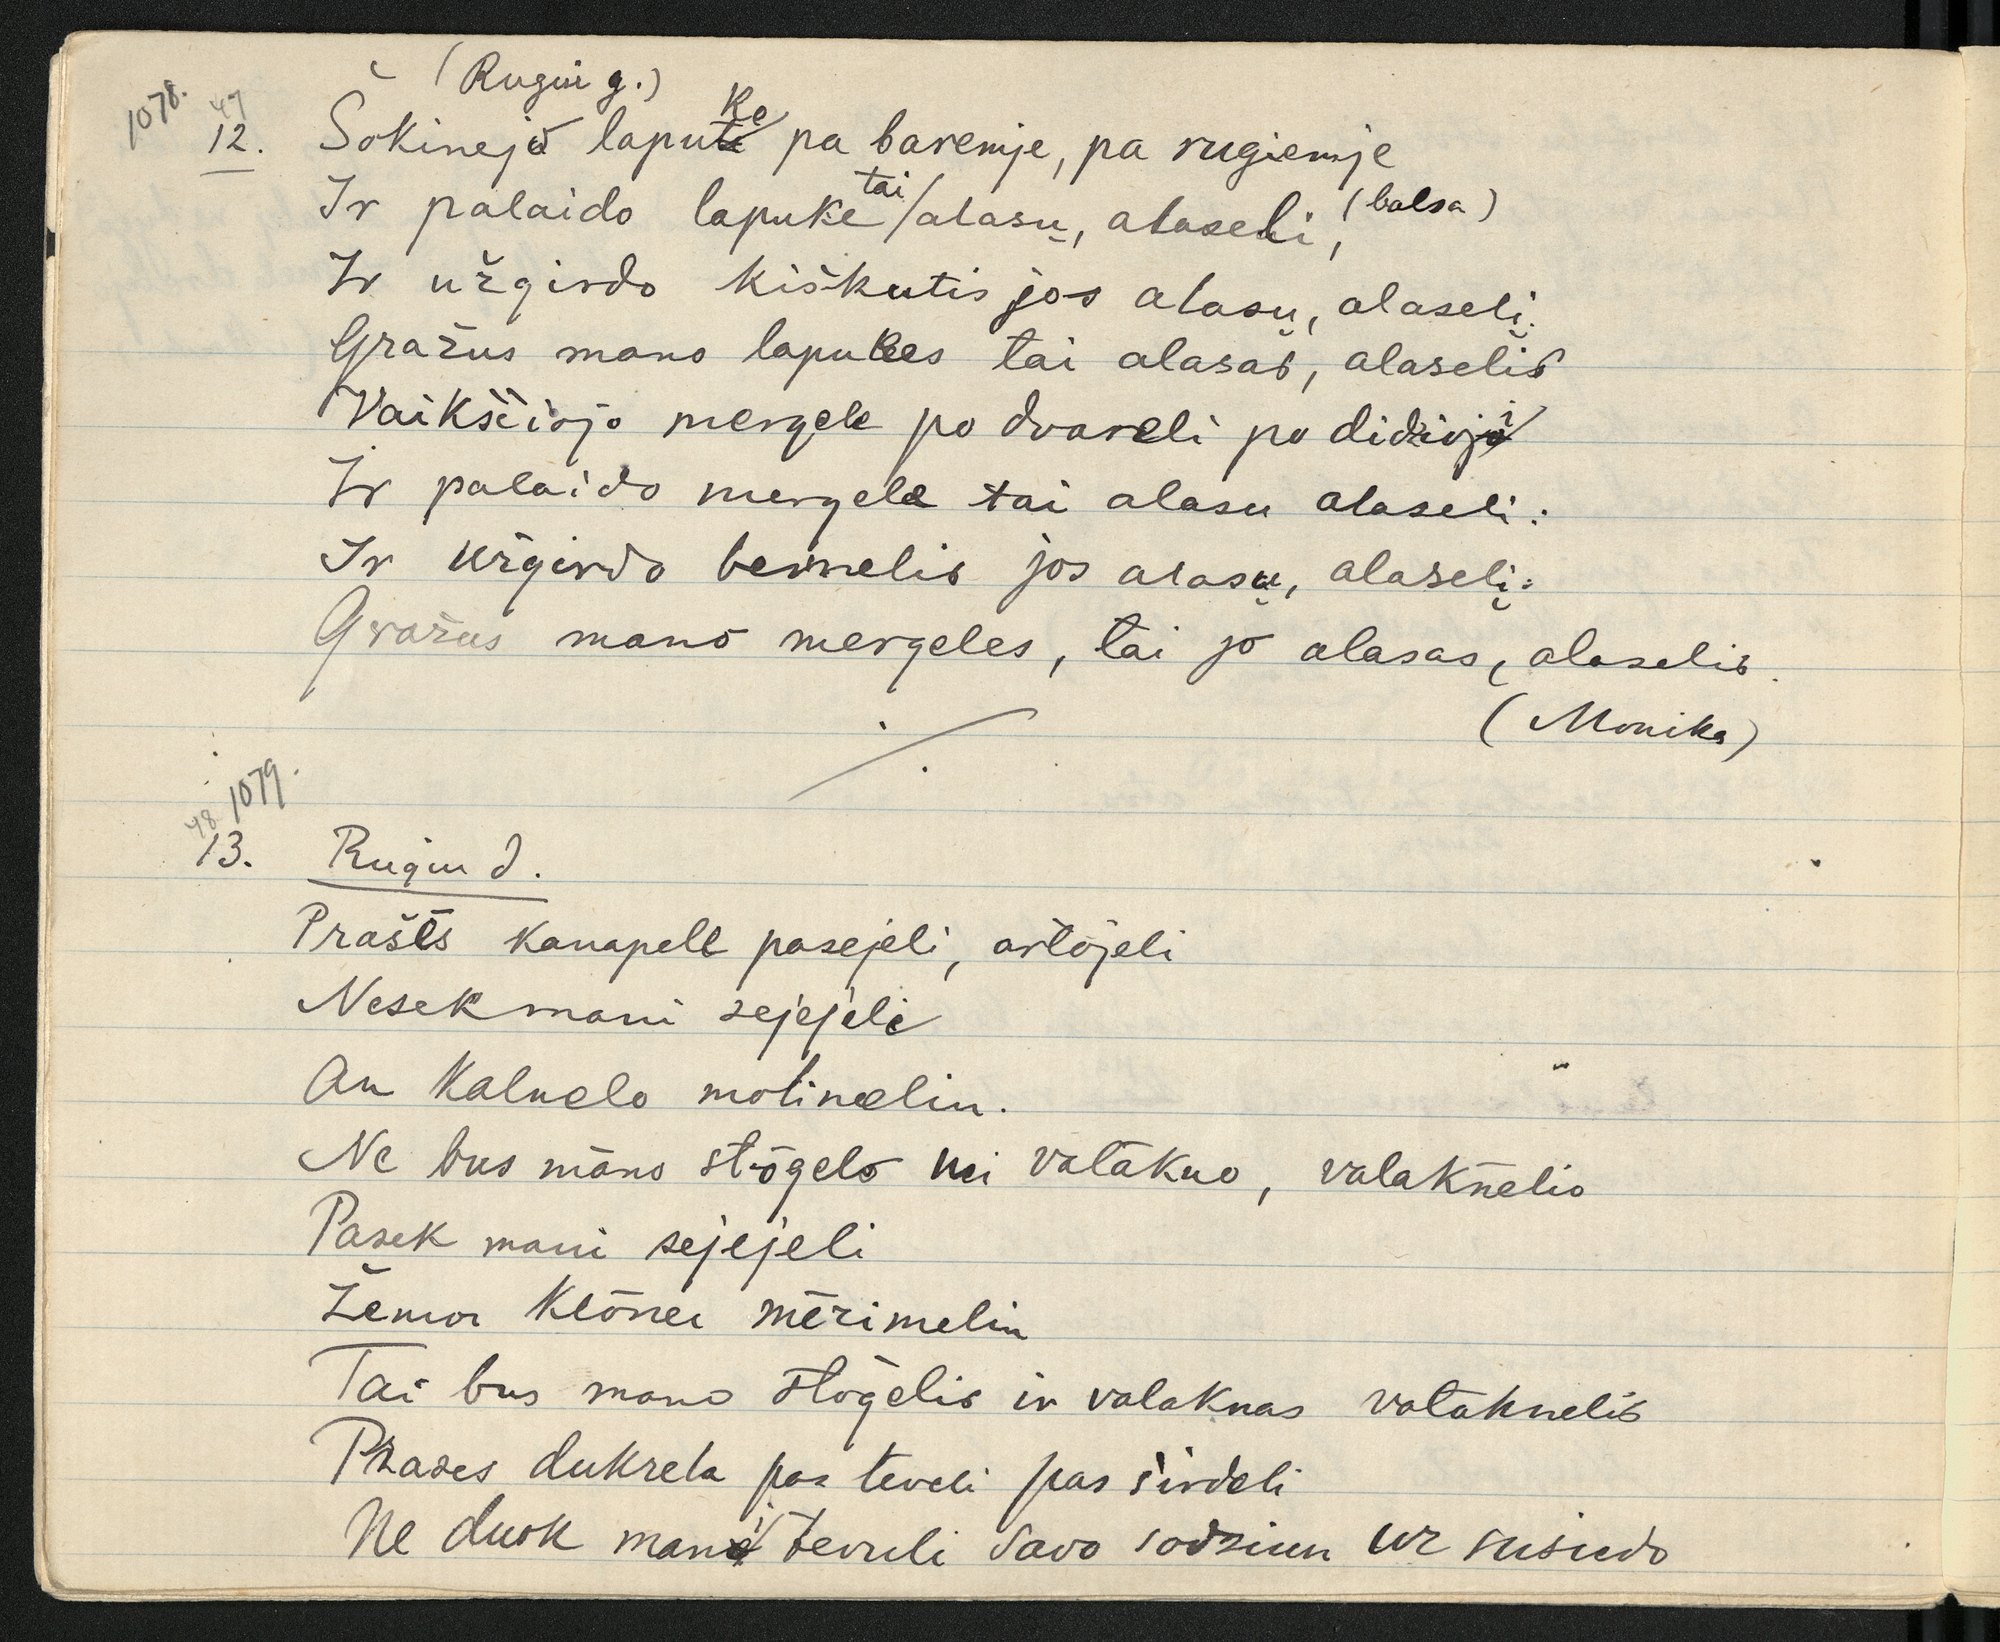 (Rugiu g.)
1078. 47
12. Šokinejo lapuke pa baremje, pa rugiemje
Ir palaido lapuke tai alasų, alaseli, (balsa)
Ir užgirdo kiškutis jos alasų, alaselį.
Gražus mano lapukes tai alasas, alaselis
Vaikščiojo mergele po dvareli po didžioji
Ir palaido mergele tai alasu alaseli.
Ir užgirdo bernelis jos alasų, alaselį.
Gražus mano mergeles, tai jo alasas, alaselis.
(Monika)
48 1079.
13. Rugiu d.
Prašės kanapele pasejeli, artōjeli
Nesek mani sejejeli
An kalnelo molinelin.
Ne bus māno stōgelo ni valākno, valaknēlio
Pasek mani sejejeli
Žemon klōnen mēzimelin
Tai bus mano stōgelis ir valaknas valāknelis
Prases dukrela pas teveli pas širdeli
Ne duok mani tevuli savo sodziun uz susiedo